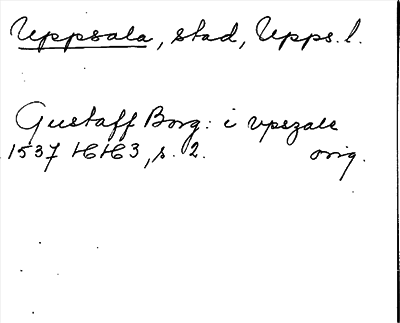 Uppsala, stad, Upps. l.
Gustaff Borg: i vpszale
1537 HH 3, s. 2. orig.